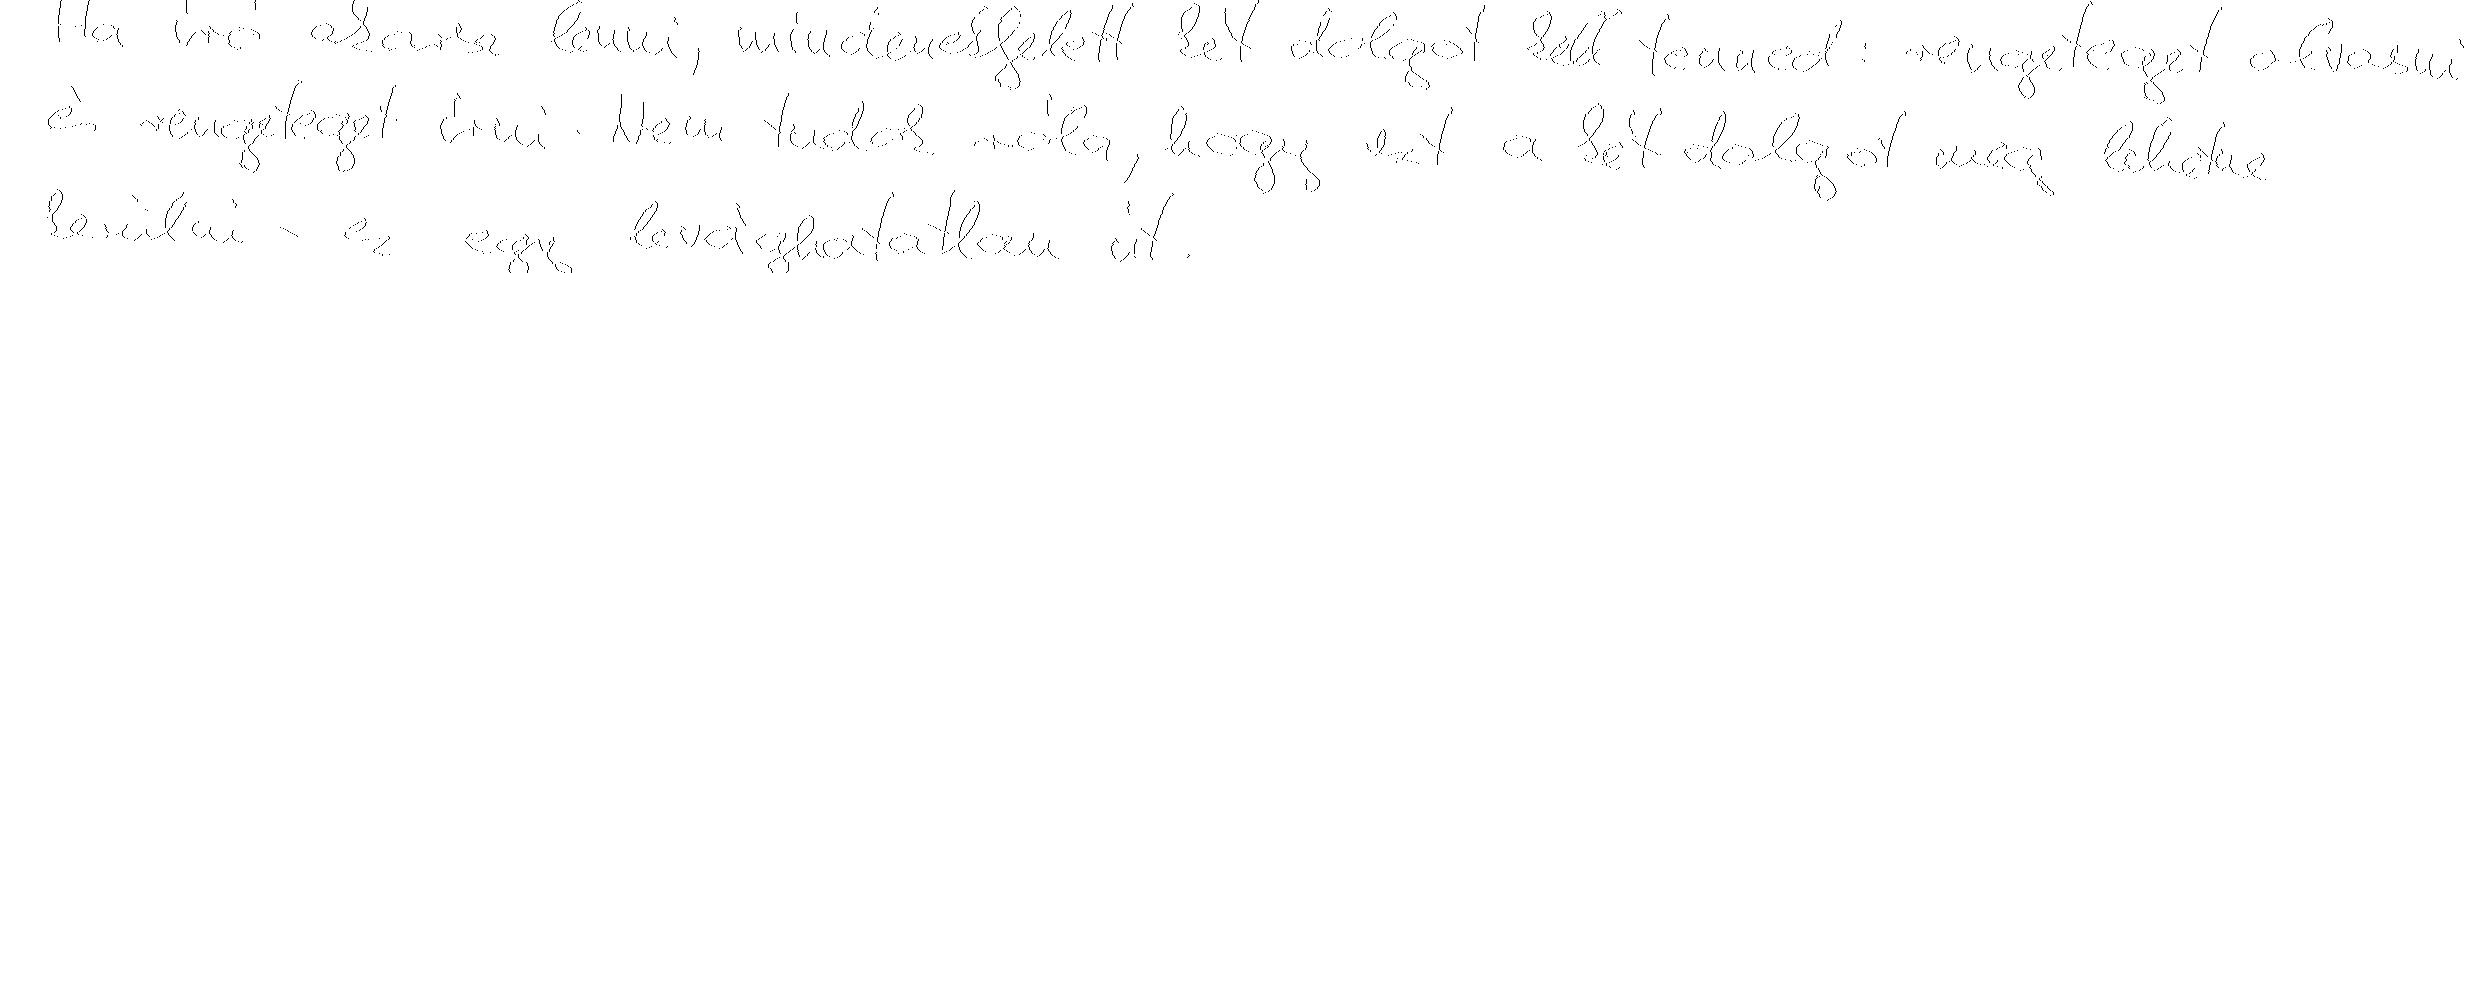 Ha író akarsz lenni, mindenekfelett két dolgot kell tenned: rengeteget olvasni
és rengeteget írni. Nem tudok róla, hogy ezt a két dolgot meg lehetne
kerülni - ez egy levághatatlan út.